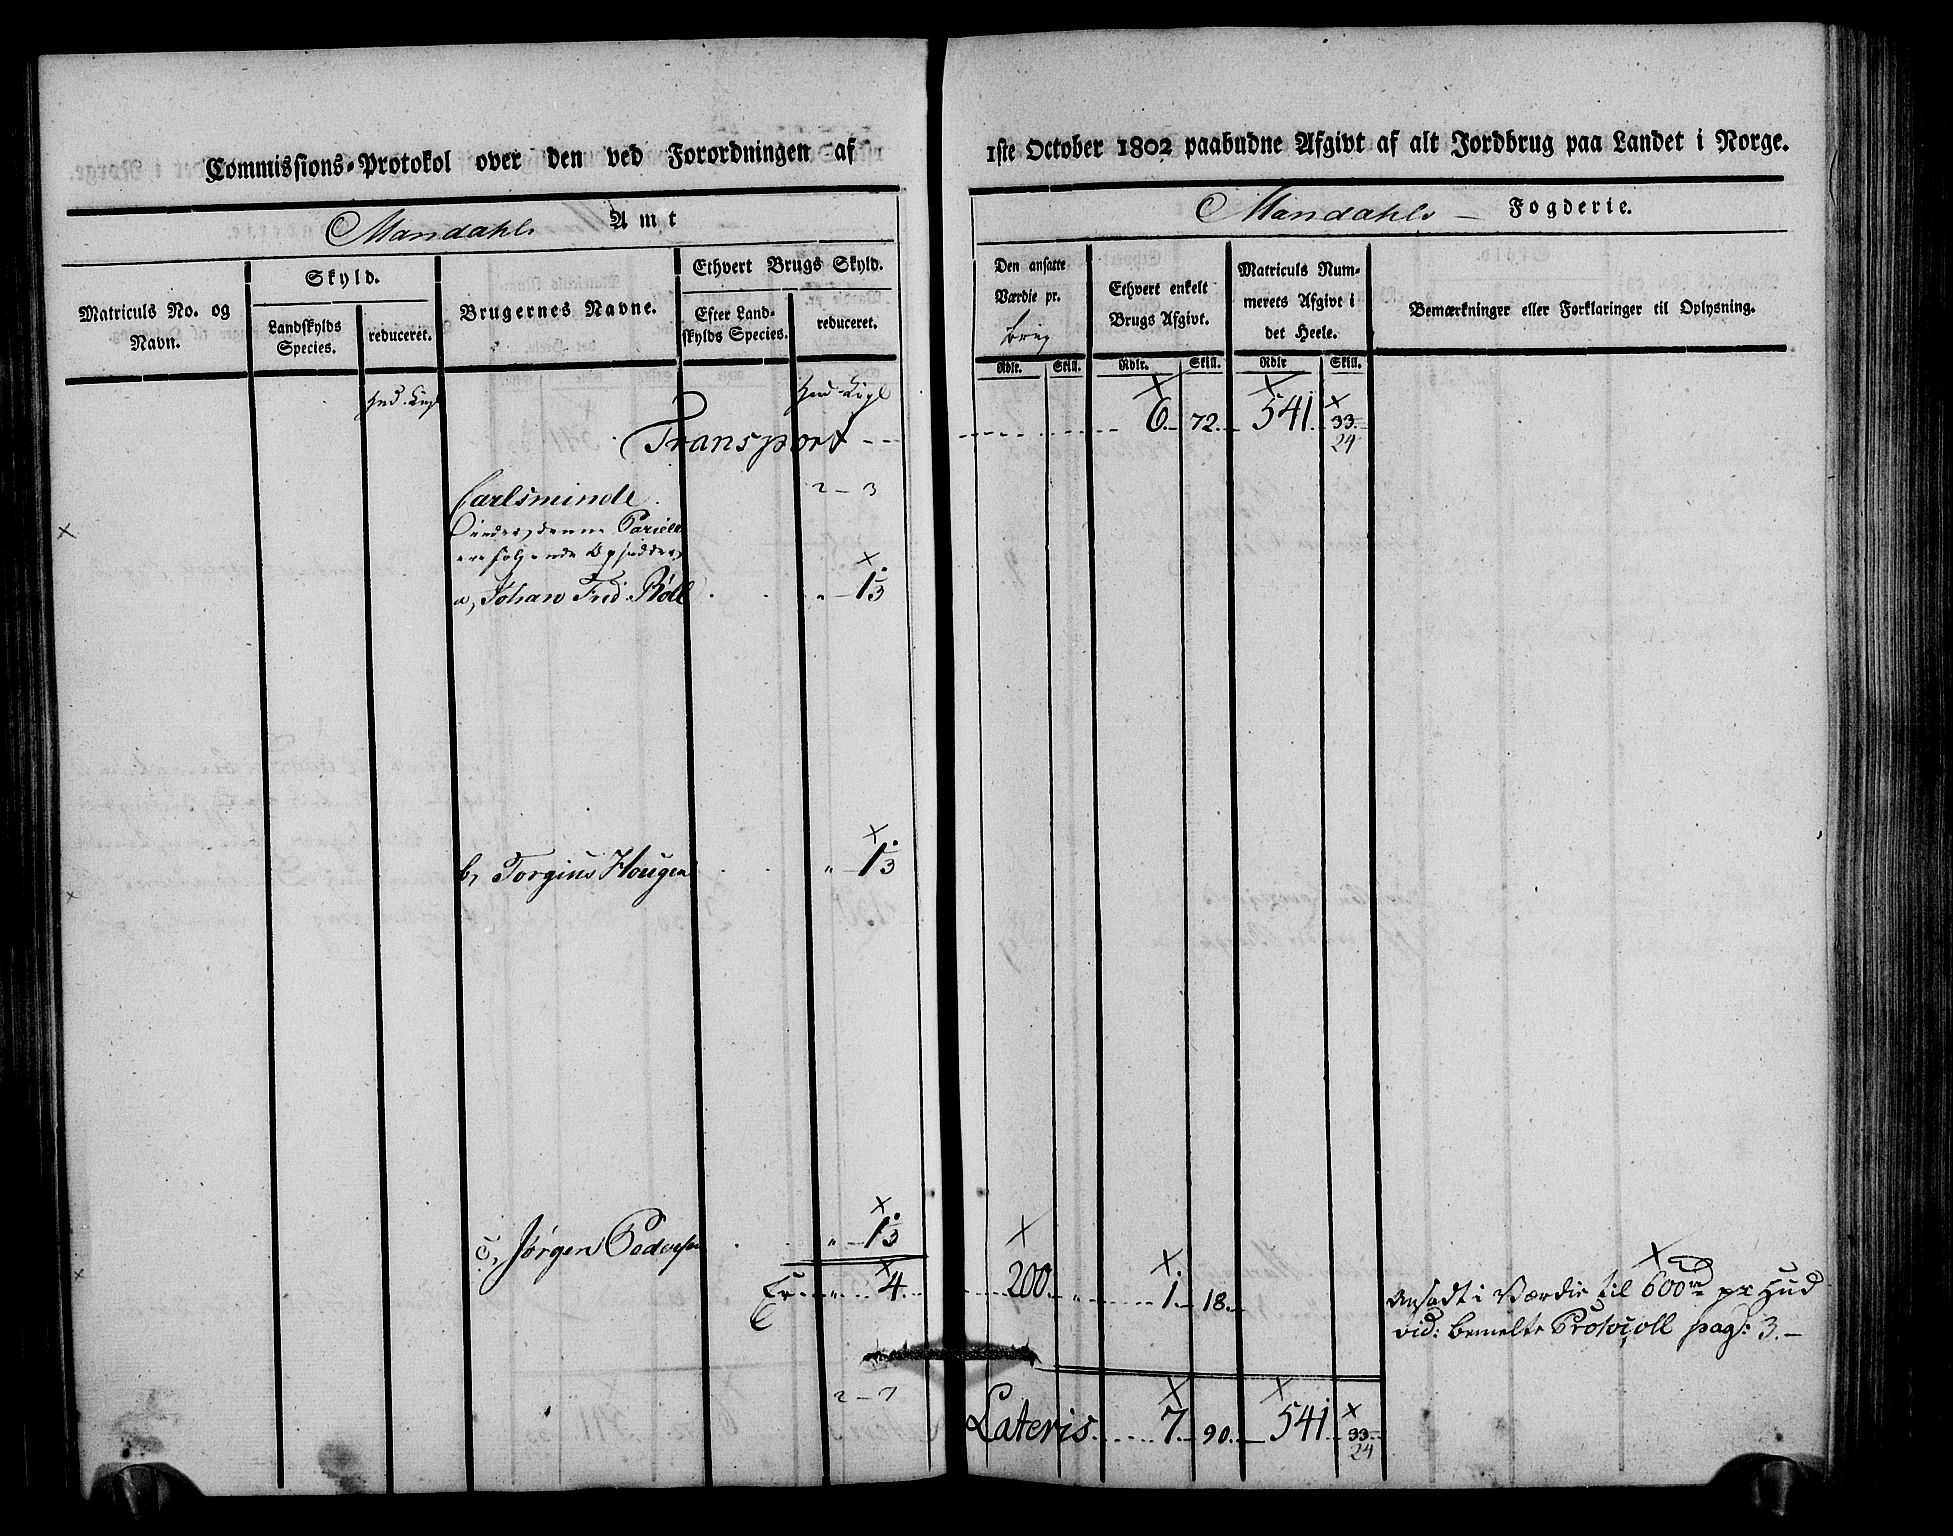 Commissions-Protokol over den ved Forordningen af
1ste October 1802 paabudne Afgivt af alt Jordbrug paa Landet i Norge.
Mandahls Amt
Mandahls Fogderie.
Matriculs No. og Navn.
Skyld.
Landskylds Species.
reduceret.
Brugernes Navne.
Ethvert Brugs Skyld.
Efter Landskylds Species.
reduceret.
Den ansatte Værdie pr.
Brug
Ethvert enkelt Brugs Afgivt.
Matriculs Nummerets Afgivt i det Heele.
Bemærkninger eller Forklaringer til Oplysning.
Rdlr. Skill. Rdlr. Skill. Rdlr Skill.
Transport - - - 6. 72. 541. 33. 24
Carlsminde 2 - 3
Under denne Parcele
ere følgende Opsidder
a, Johan Frid. " 1 1/3
b, Torgius Hougen " 1 1/3
c, Jørgen Pedersen " 1 1/3
Er " 4. 200. " 1. 18.
Ansadt i Værdie til 600 rd pr Hud
vid: bemelte Protocoll pag: 3.
2 - 7
Lateris 7. 90. 541. 33. 24